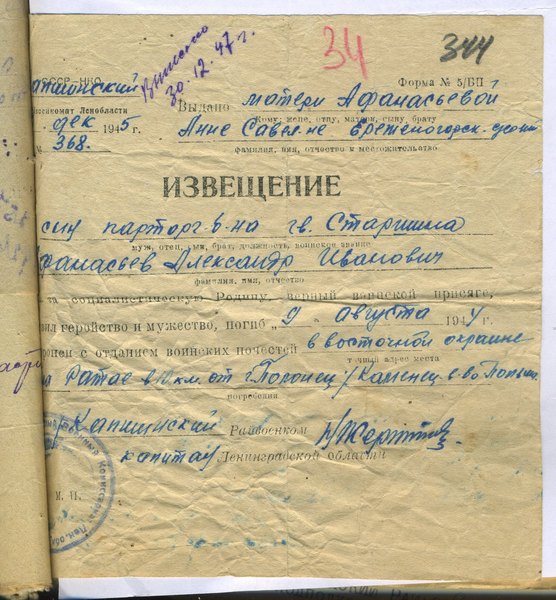 Выписано
30.12.47 г.
34
344
СССР-НКО
Капшинский
Форма № 5/БП
Выдано матери Афанасьевой
военкомат Ленобласти
Кому: жене, отцу, матери, сыну, брату
дек 1945 г.
Анне Савельевне
№ 368.
фамилия, имя, отчество и местожительство
ИЗВЕЩЕНИЕ
сын парторг б-на гв. Старшина
муж, отец, сын, брат, должность, воинское звание
Афанасьев Александр Иванович
фамилия, имя, отчество
за социалистическую Родину, верный воинской присяге,
ил геройство и мужество, погиб „9 августа 1944 г.
ронен с отданием воинских почестей в восточной окраине
точный адрес места
Ратае в 10 км. от г. Поланец / Каменец в-во Польша
погребения
Капшинский Райвоенком
капитан Ленинградской области
М. П.